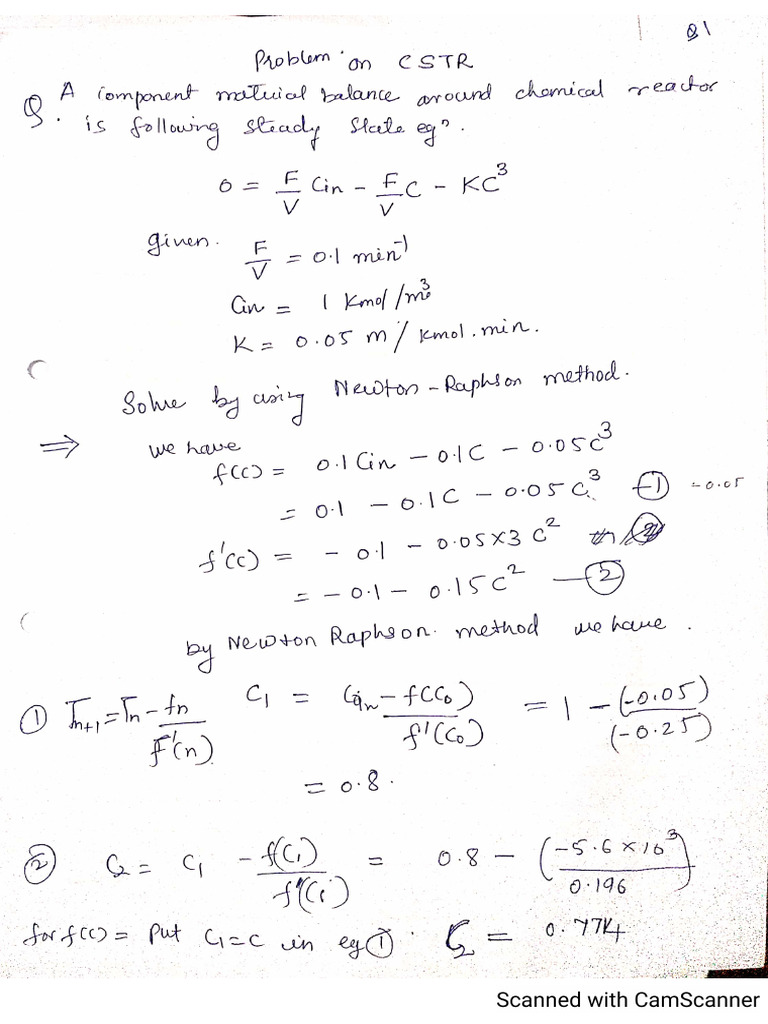 Q1
Problem on CSTR
Q. A component material balance around chemical reactor
is following steady state eqn.
0 = F/V Cin - F/V C - KC^3
given. F/V = 0.1 min^-1
Cin = 1 Kmol/m^3
K = 0.05 m/Kmol.min.
Solve by using Newton-Raphson method.
⇒ we have
f(c) = 0.1 Cin - 0.1C - 0.05C^3
= 0.1 - 0.1C - 0.05C^3 —① -0.05
f'(c) = -0.1 - 0.05×3 C^2
= -0.1 - 0.15C^2 —②
by Newton Raphson. method we have.
① Tn+1 = Tn - fn/F'(n) C1 = Cin - f(C0)/f'(C0) = 1 - (-0.05)/(-0.25)
= 0.8.
② C2 = C1 - f(C1)/f'(C1) = 0.8 - (-5.6×10^3/0.196)
for f(c) = Put C1=C in eq ①. C2 = 0.774
Scanned with CamScanner